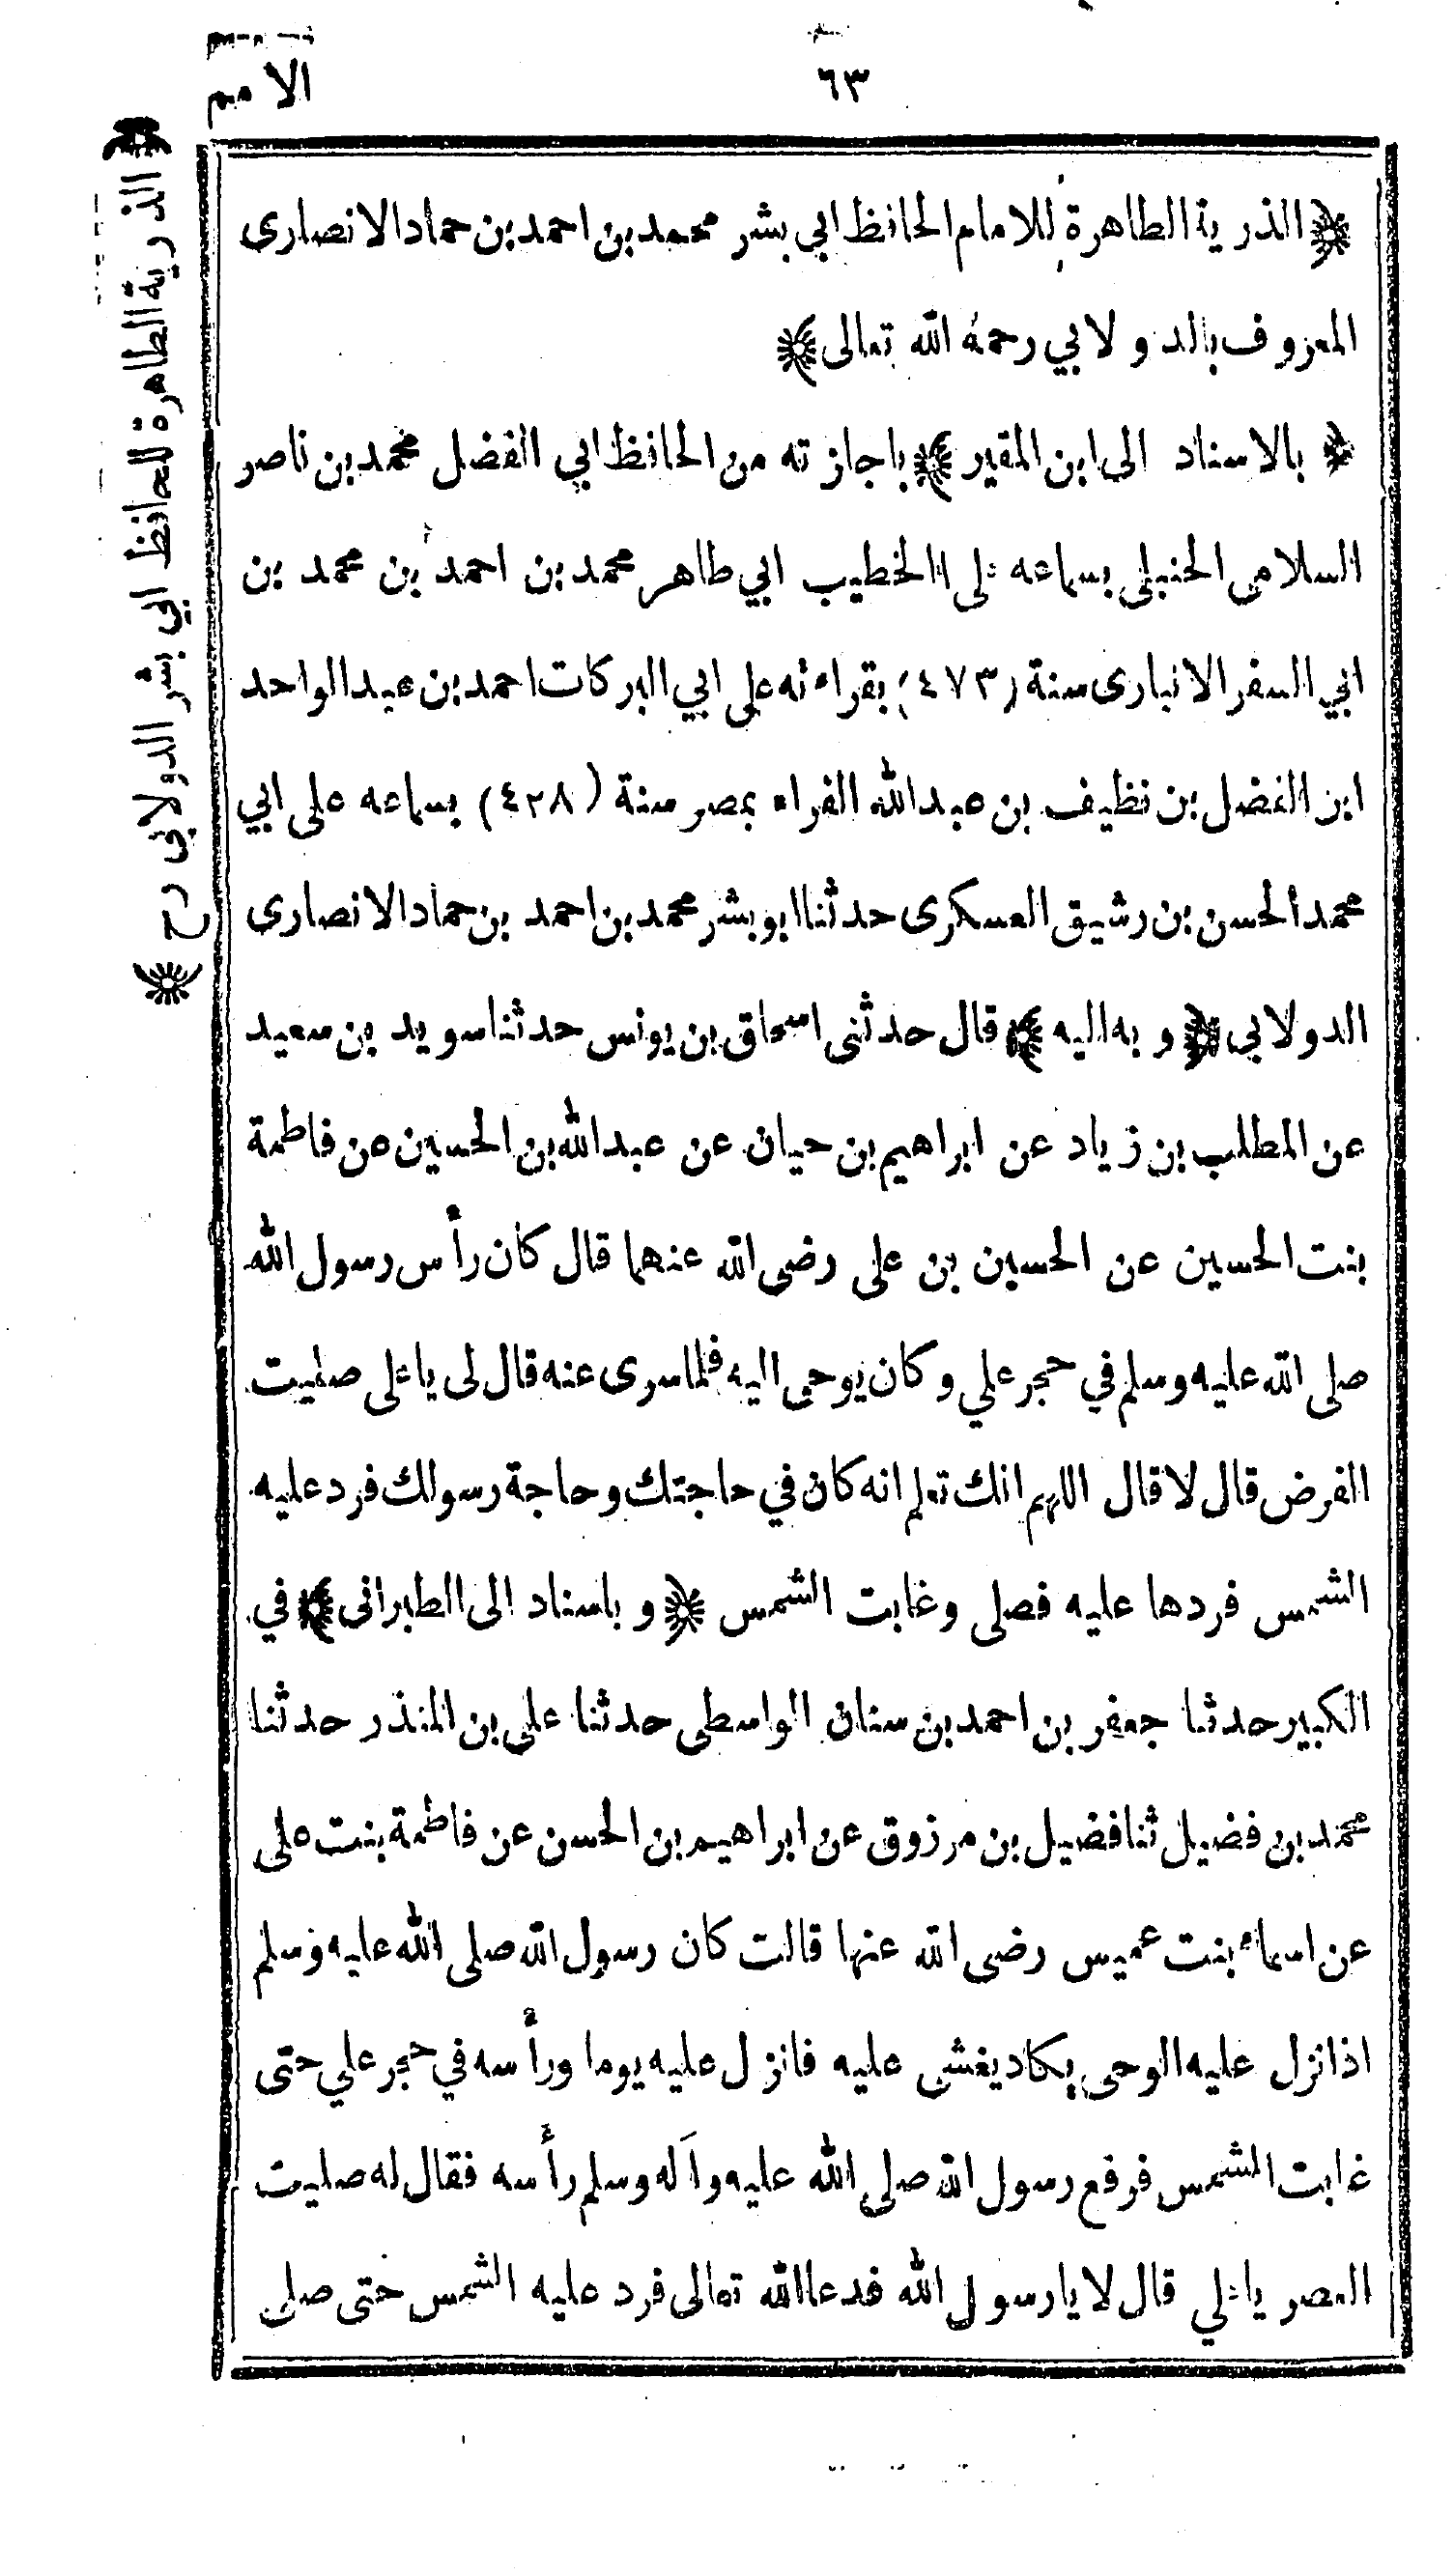 ٦٣
الامم
الذرية الطاهرة للامام الحافظ ابي بشر محمد بن احمد بن حماد الانصارى
المعروف بالدولابي رحمه الله تعالى
بالاسناد الى ابن المقير باجازته من الحافظ ابي الفضل محمد بن ناصر
السلامي الحنبلى بسماعه على الخطيب ابي طاهر محمد بن احمد بن محمد بن
ابي السفر الانبارى سنة (٤٧٣) بقراءته على ابي البركات احمد بن عبد الواحد
ابن الفضل بن نظيف بن عبد الله الفراء بمصر سنة (٤٢٨) بسماعه على ابي
محمد الحسن بن رشيق العسكرى حدثنا ابو بشر محمد بن احمد بن حماد الانصارى
الدولابي و به اليه قال حدثنى اسحاق بن يونس حدثنا سويد بن سعيد
عن المطلب بن زياد عن ابراهيم بن حيان عن عبد الله بن الحسين عن فاطمة
بنت الحسين عن الحسين بن على رضى الله عنهما قال كان رأس رسول الله
صلى الله عليه وسلم في حجر علي وكان يوحى اليه فلما سرى عنه قال لى يا على صليت
الفرض قال لا قال اللهم انك تعلم انه كان في حاجتك وحاجة رسولك فرد عليه
الشمس فردها عليه فصلى وغابت الشمس و باسناد الى الطبرانى في
الكبير حدثنا جعفر بن احمد بن سنان الواسطى حدثنا على بن المنذر حدثنا
محمد بن فضيل ثنا فضيل بن مرزوق عن ابراهيم بن الحسن عن فاطمة بنت على
عن اسماء بنت عميس رضى الله عنها قالت كان رسول الله صلى الله عليه وسلم
اذا نزل عليه الوحى يكاد يغشى عليه فانزل عليه يوما ورأسه في حجر علي حتى
غابت الشمس فرفع رسول الله صلى الله عليه وآله وسلم رأسه فقال له صليت
العصر يا علي قال لا يا رسول الله فدعا الله تعالى فرد عليه الشمس حتى صلى
الذرية الطاهرة للحافظ ابي بشر الدولابى رح